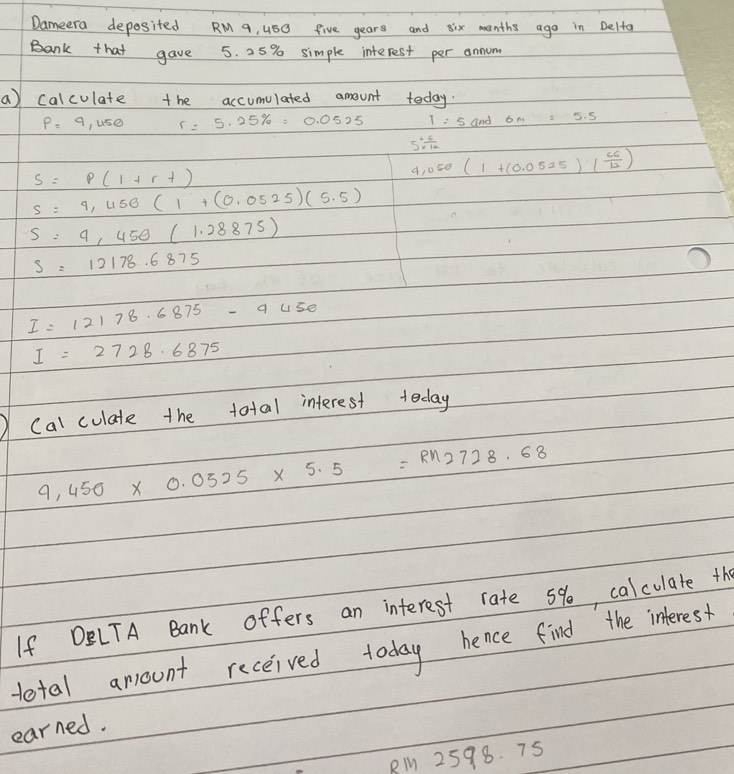 Dameera deposited RM 9,450 five years and six months ago in Delta
Bank that gave 5.25% simple interest per annum
a) Calculate the accumulated amount today.
P = 9,450 r = 5.25% = 0.0525 T = 5 and 6m = 5.5
S = P(1 + r t)
4,050 (1 + (0.0525) (66/12)
S = 9,450 (1 + (0.0525)(5.5)
S = 9,450 (1.28875)
S = 12178.6875
I = 12178.6875 - 9450
I = 2728.6875
) Calculate the total interest today
9,450 x 0.0525 x 5.5 = RM2728.68
If DELTA Bank offers an interest rate 5%, calculate the
total amount received today hence find the interest
earned.
RM 2598.75